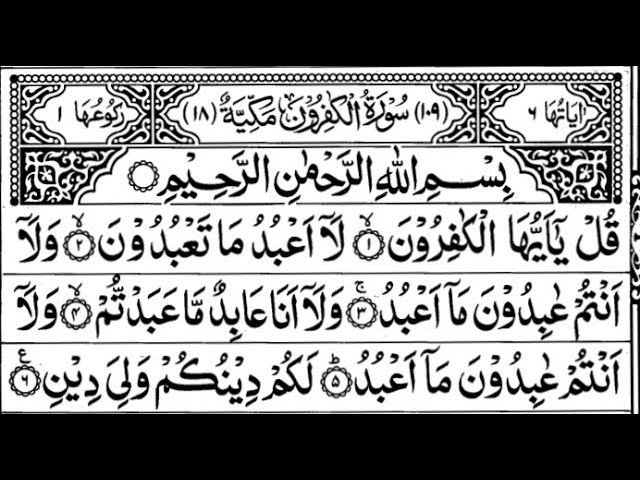 اٰيَاتُهَا ٦ (١٠٩) سُوْرَةُ الْكٰفِرُوْنَ مَكِّيَّةٌ (١٨) رُكُوْعُهَا ١
بِسْمِ اللّٰهِ الرَّحْمٰنِ الرَّحِيْمِ
قُلْ يٰٓاَيُّهَا الْكٰفِرُوْنَ ۙ﴿١﴾ لَاۤ اَعْبُدُ مَا تَعْبُدُوْنَ ۙ﴿٢﴾ وَلَاۤ
اَنْتُمْ عٰبِدُوْنَ مَاۤ اَعْبُدُ ۚ﴿٣﴾ وَلَاۤ اَنَا عَابِدٌ مَّا عَبَدْتُّمْ ۙ﴿٤﴾ وَلَاۤ
اَنْتُمْ عٰبِدُوْنَ مَاۤ اَعْبُدُ ؕ﴿٥﴾ لَكُمْ دِيْنُكُمْ وَلِيَ دِيْنِ ﴿٦﴾ ع